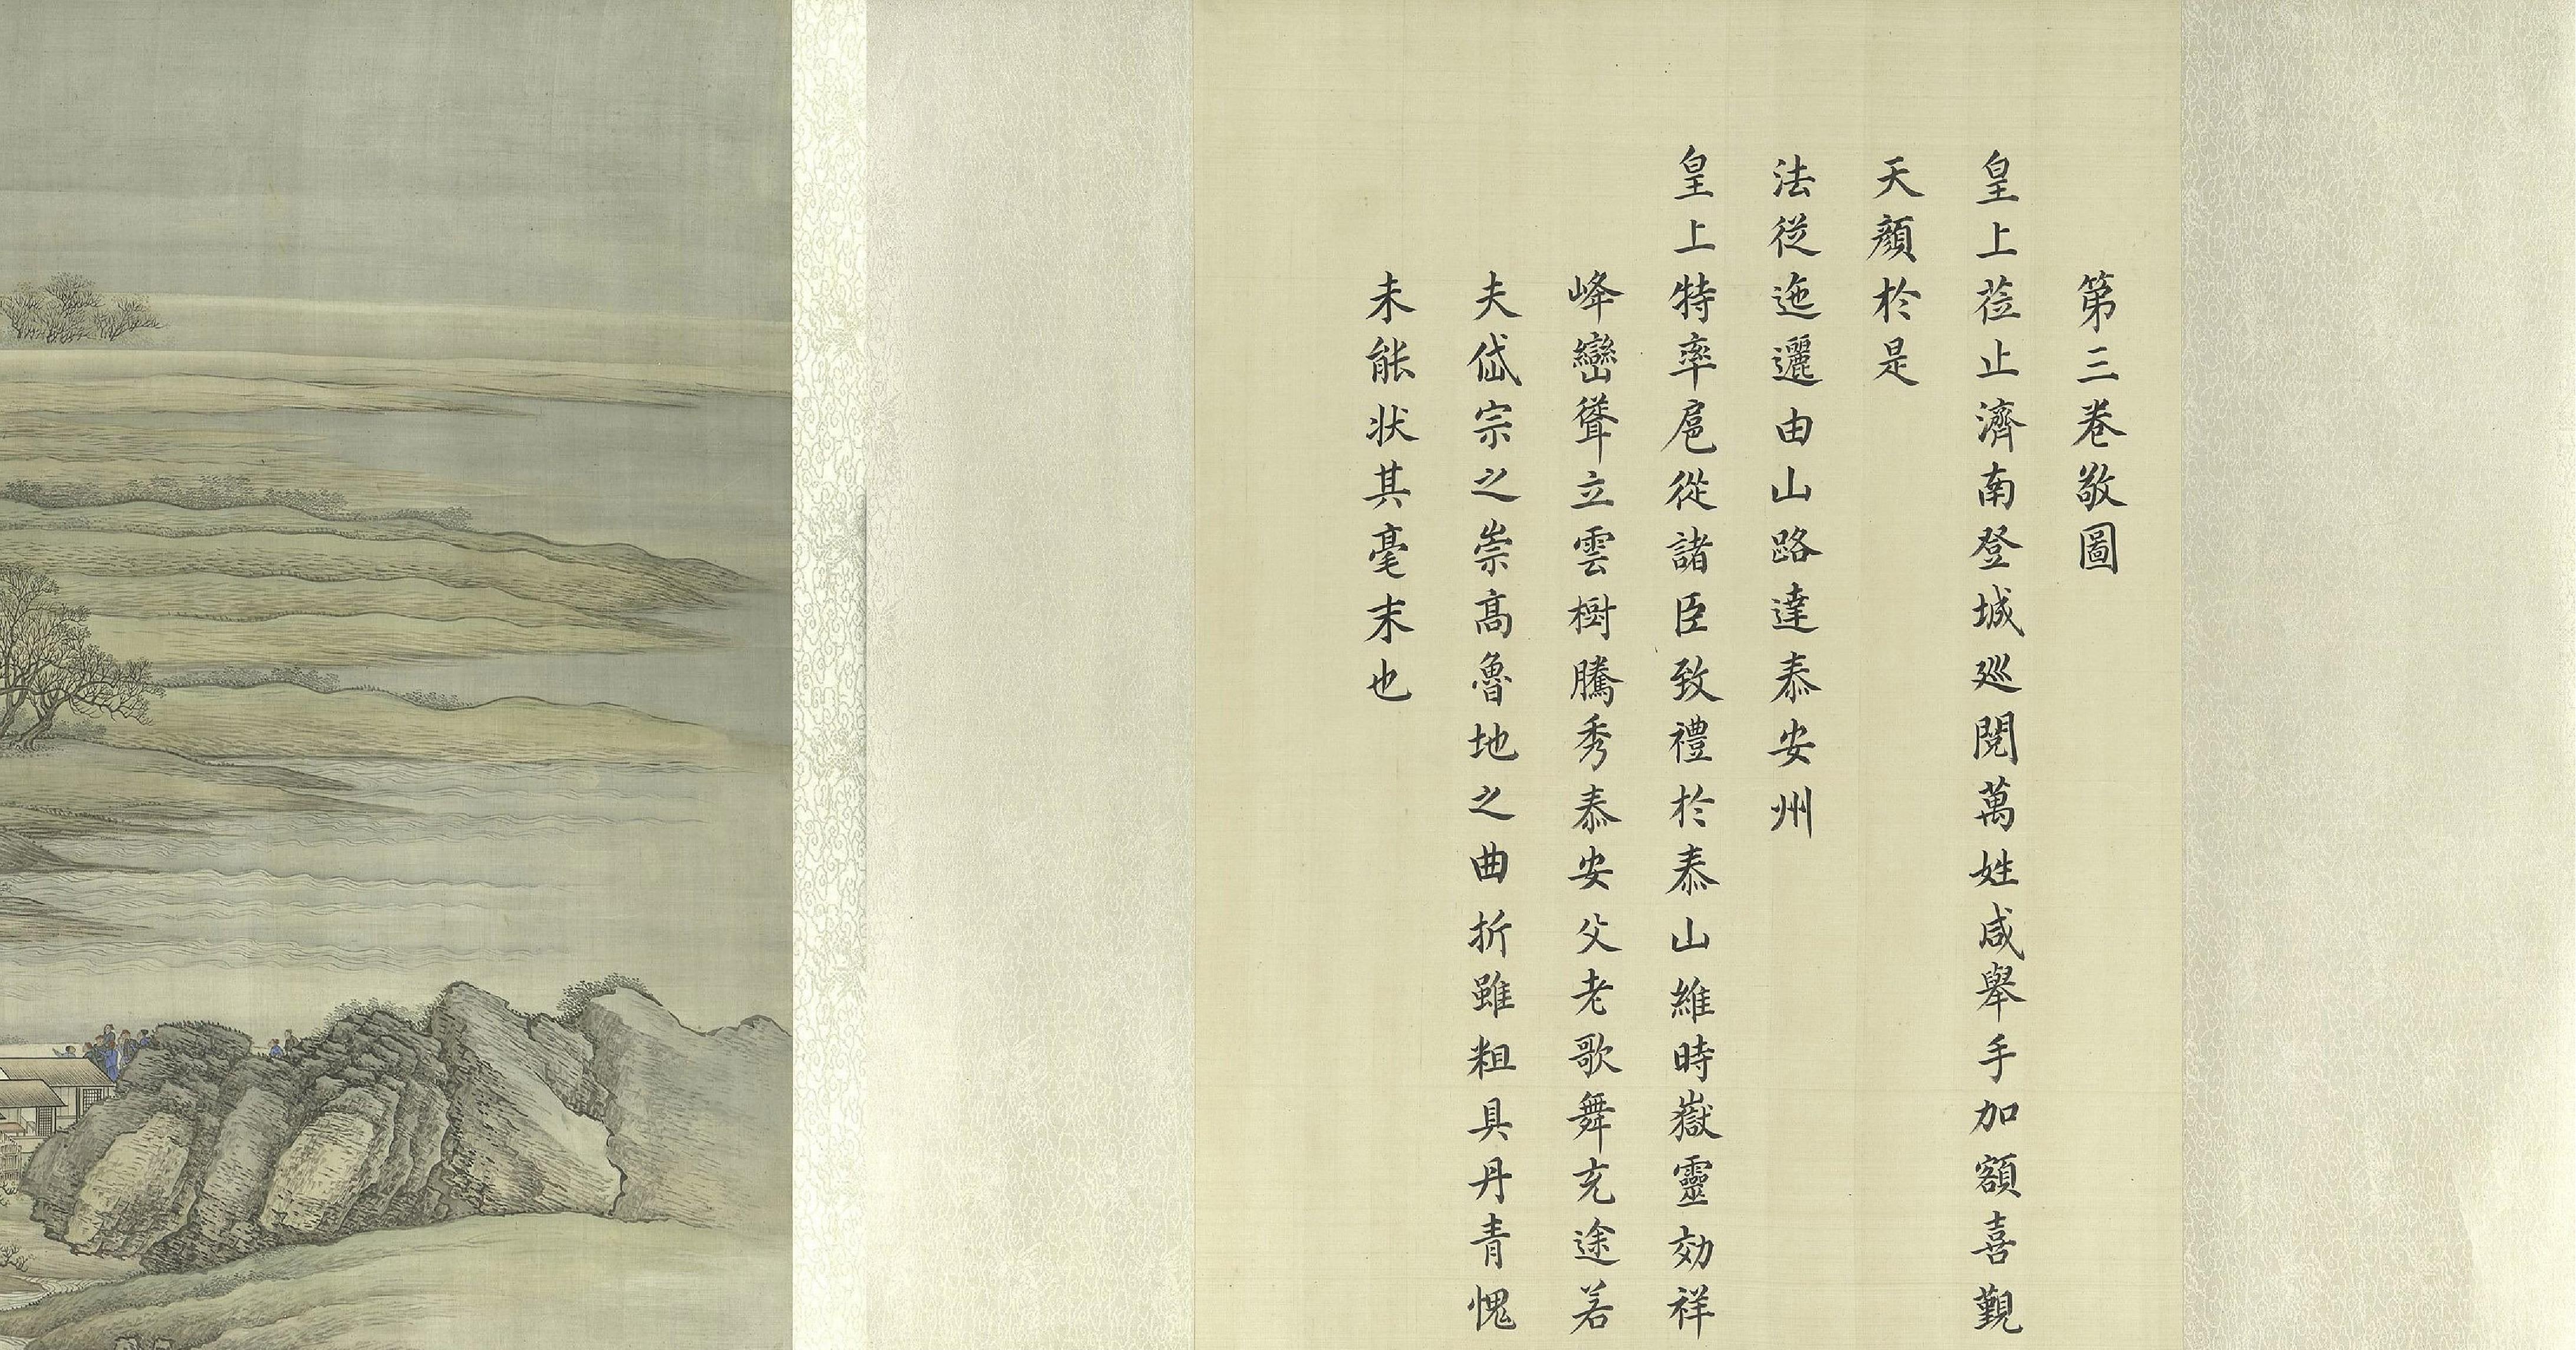 第三卷敬圖
皇上莅止濟南登城廵閱萬姓咸舉手加額喜覲
天顏於是
法從迤邐由山路達泰安州
皇上特率扈從諸臣致禮於泰山維時嶽靈効祥
峰巒聳立雲樹騰秀泰安父老歌舞充途若
夫岱宗之崇高魯地之曲折雖粗具丹青愧
未能状其毫末也